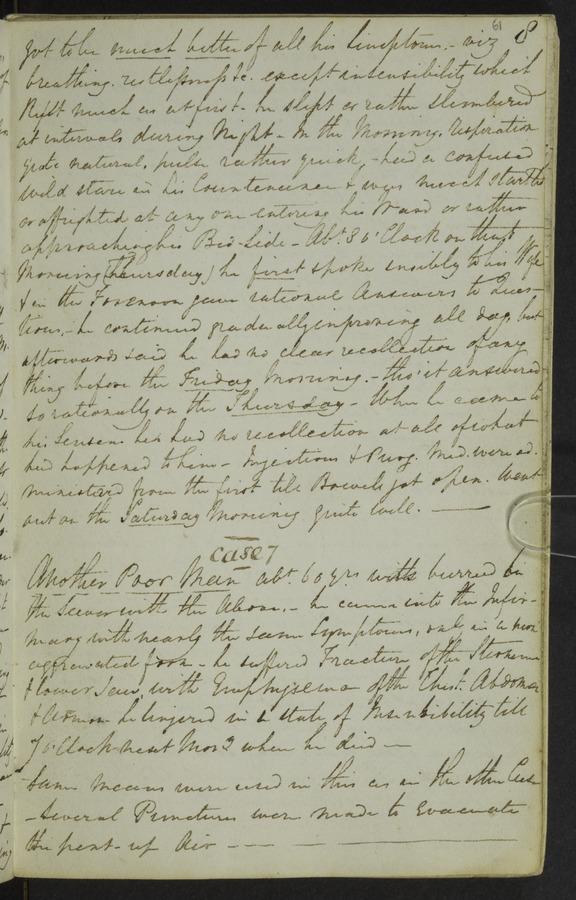 61 8
got to be much better of all his Simptoms, - viz
breathing. restlessness &c. except insensibility which
kept much as at first - he slept or rather slumbered
at intervals during Night - In the Morning. Respiration
quite natural, pulse rather quick, - had a confused
wild stare in his Countenance & was much startled
or affrighted at any one entering his Ward or rather
approaching his Bed-Side - Abt. 3 o'Clock on that
Morning (Thursday) he first spoke sensibly to his Wife
& in the Forenoon gave rational Answers to Ques-
tions, - he continued gradually improving all day, but
afterwards said he had no clear recollection of any
thing before the Friday Morning. - tho' it answered
so rationally on the Thursday - When he came to
his Senses he had no recollection at all of what
had happened to him - Injections & Purg. Med. were ad-
ministered from the first till Bowels got open. Went
out on the Saturday Morning quite well. -
case 7
Another Poor Man abt. 60 yrs. with burried in
the Sewer with the Above, - he came into the Infir-
mary with nearly the same Symptoms, only in a more
aggravated form - he suffered Fracture of the Sternum
& lower Jaw, with Emphysema of the Chest. Abdomen
& he lingered in a state of Insensibility till
7 o'Clock next Mor. when he died -
Same means were used in this as in the other Case
- Several Punctures were made to Evacuate
the pent-up Air - - -